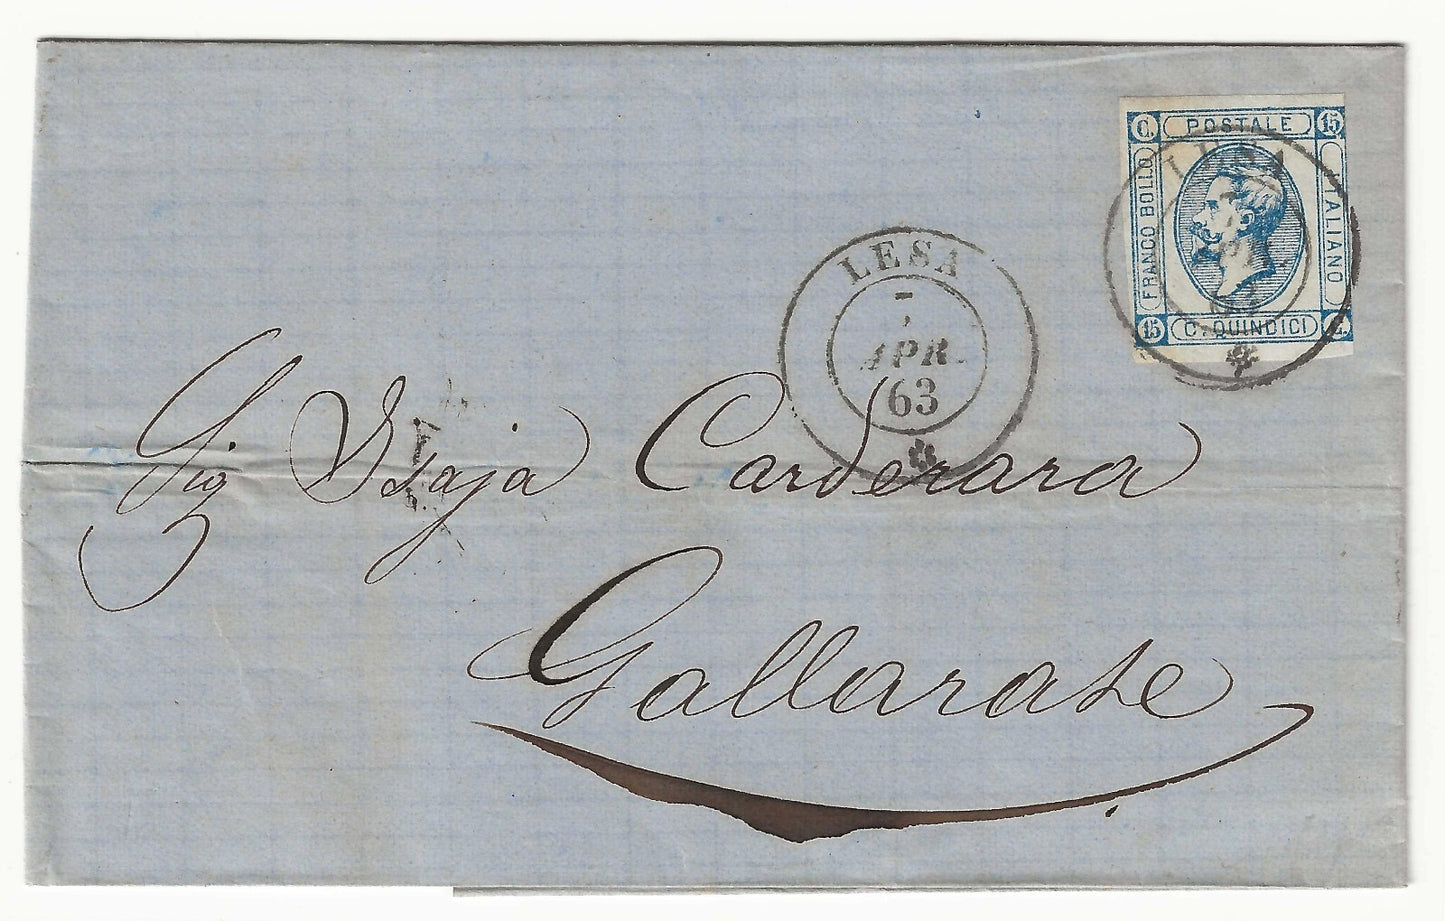 C. POSTALE 15
FRANCO BOLLO
ITALIANO
15 C. QUINDICI C.
LESA
LESA
7
APR.
63
Sig Biaja Carderara
Gallarate